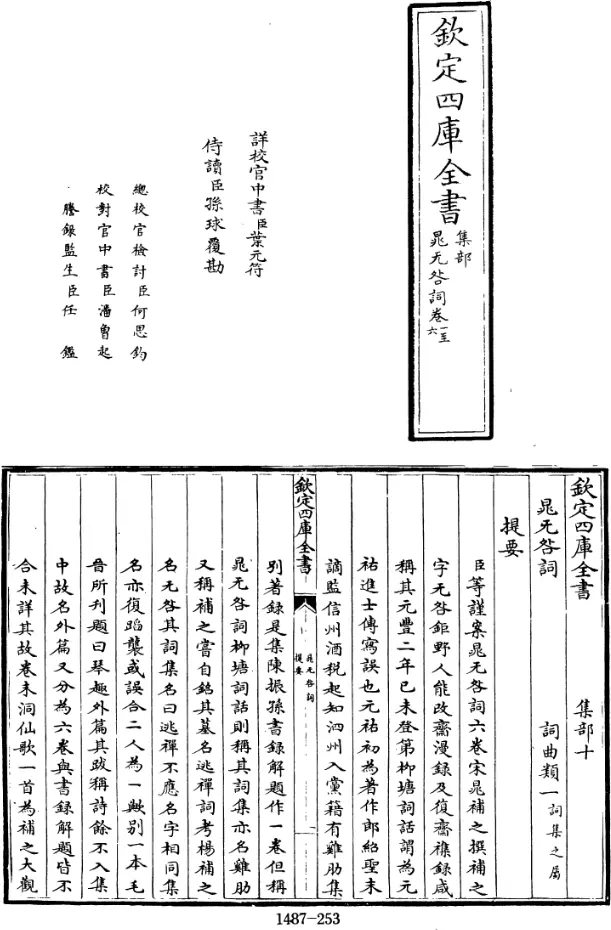 欽定四庫全書
集部
晁无咎詞卷一至六
詳校官中書臣葉元符
侍讀臣孫球覆勘
總校官檢討臣何思鈞
校對官中書臣潘曾起
謄錄監生臣任鑑
欽定四庫全書
集部十
晁无咎詞
詞曲類一詞集之屬
提要
臣等謹案晁无咎詞六卷宋晁補之撰補之
字无咎鉅野人能改齋漫録及復齋襍録咸
稱其元豐二年己未登第柳塘詞話謂為元
祐進士傳寫誤也元祐初為著作郎紹聖末
謫監信州酒稅起知泗州入黨籍有雞肋集
欽定四庫全書
晁无咎詞
提要
一
別著録是集陳振孫書録解題作一卷但稱
晁无咎詞柳塘詞話則稱其詞集亦名雞肋
又稱補之嘗自銘其墓名逃禪詞考楊補之
名无咎其詞集名曰逃禪不應名字相同集
名亦復蹈襲或誤合二人為一歟別一本毛
晉所刊題曰琴趣外篇其跋稱詩餘不入集
中故名外篇又分為六卷與書録解題皆不
合未詳其故卷末洞仙歌一首為補之大觀
1487-253